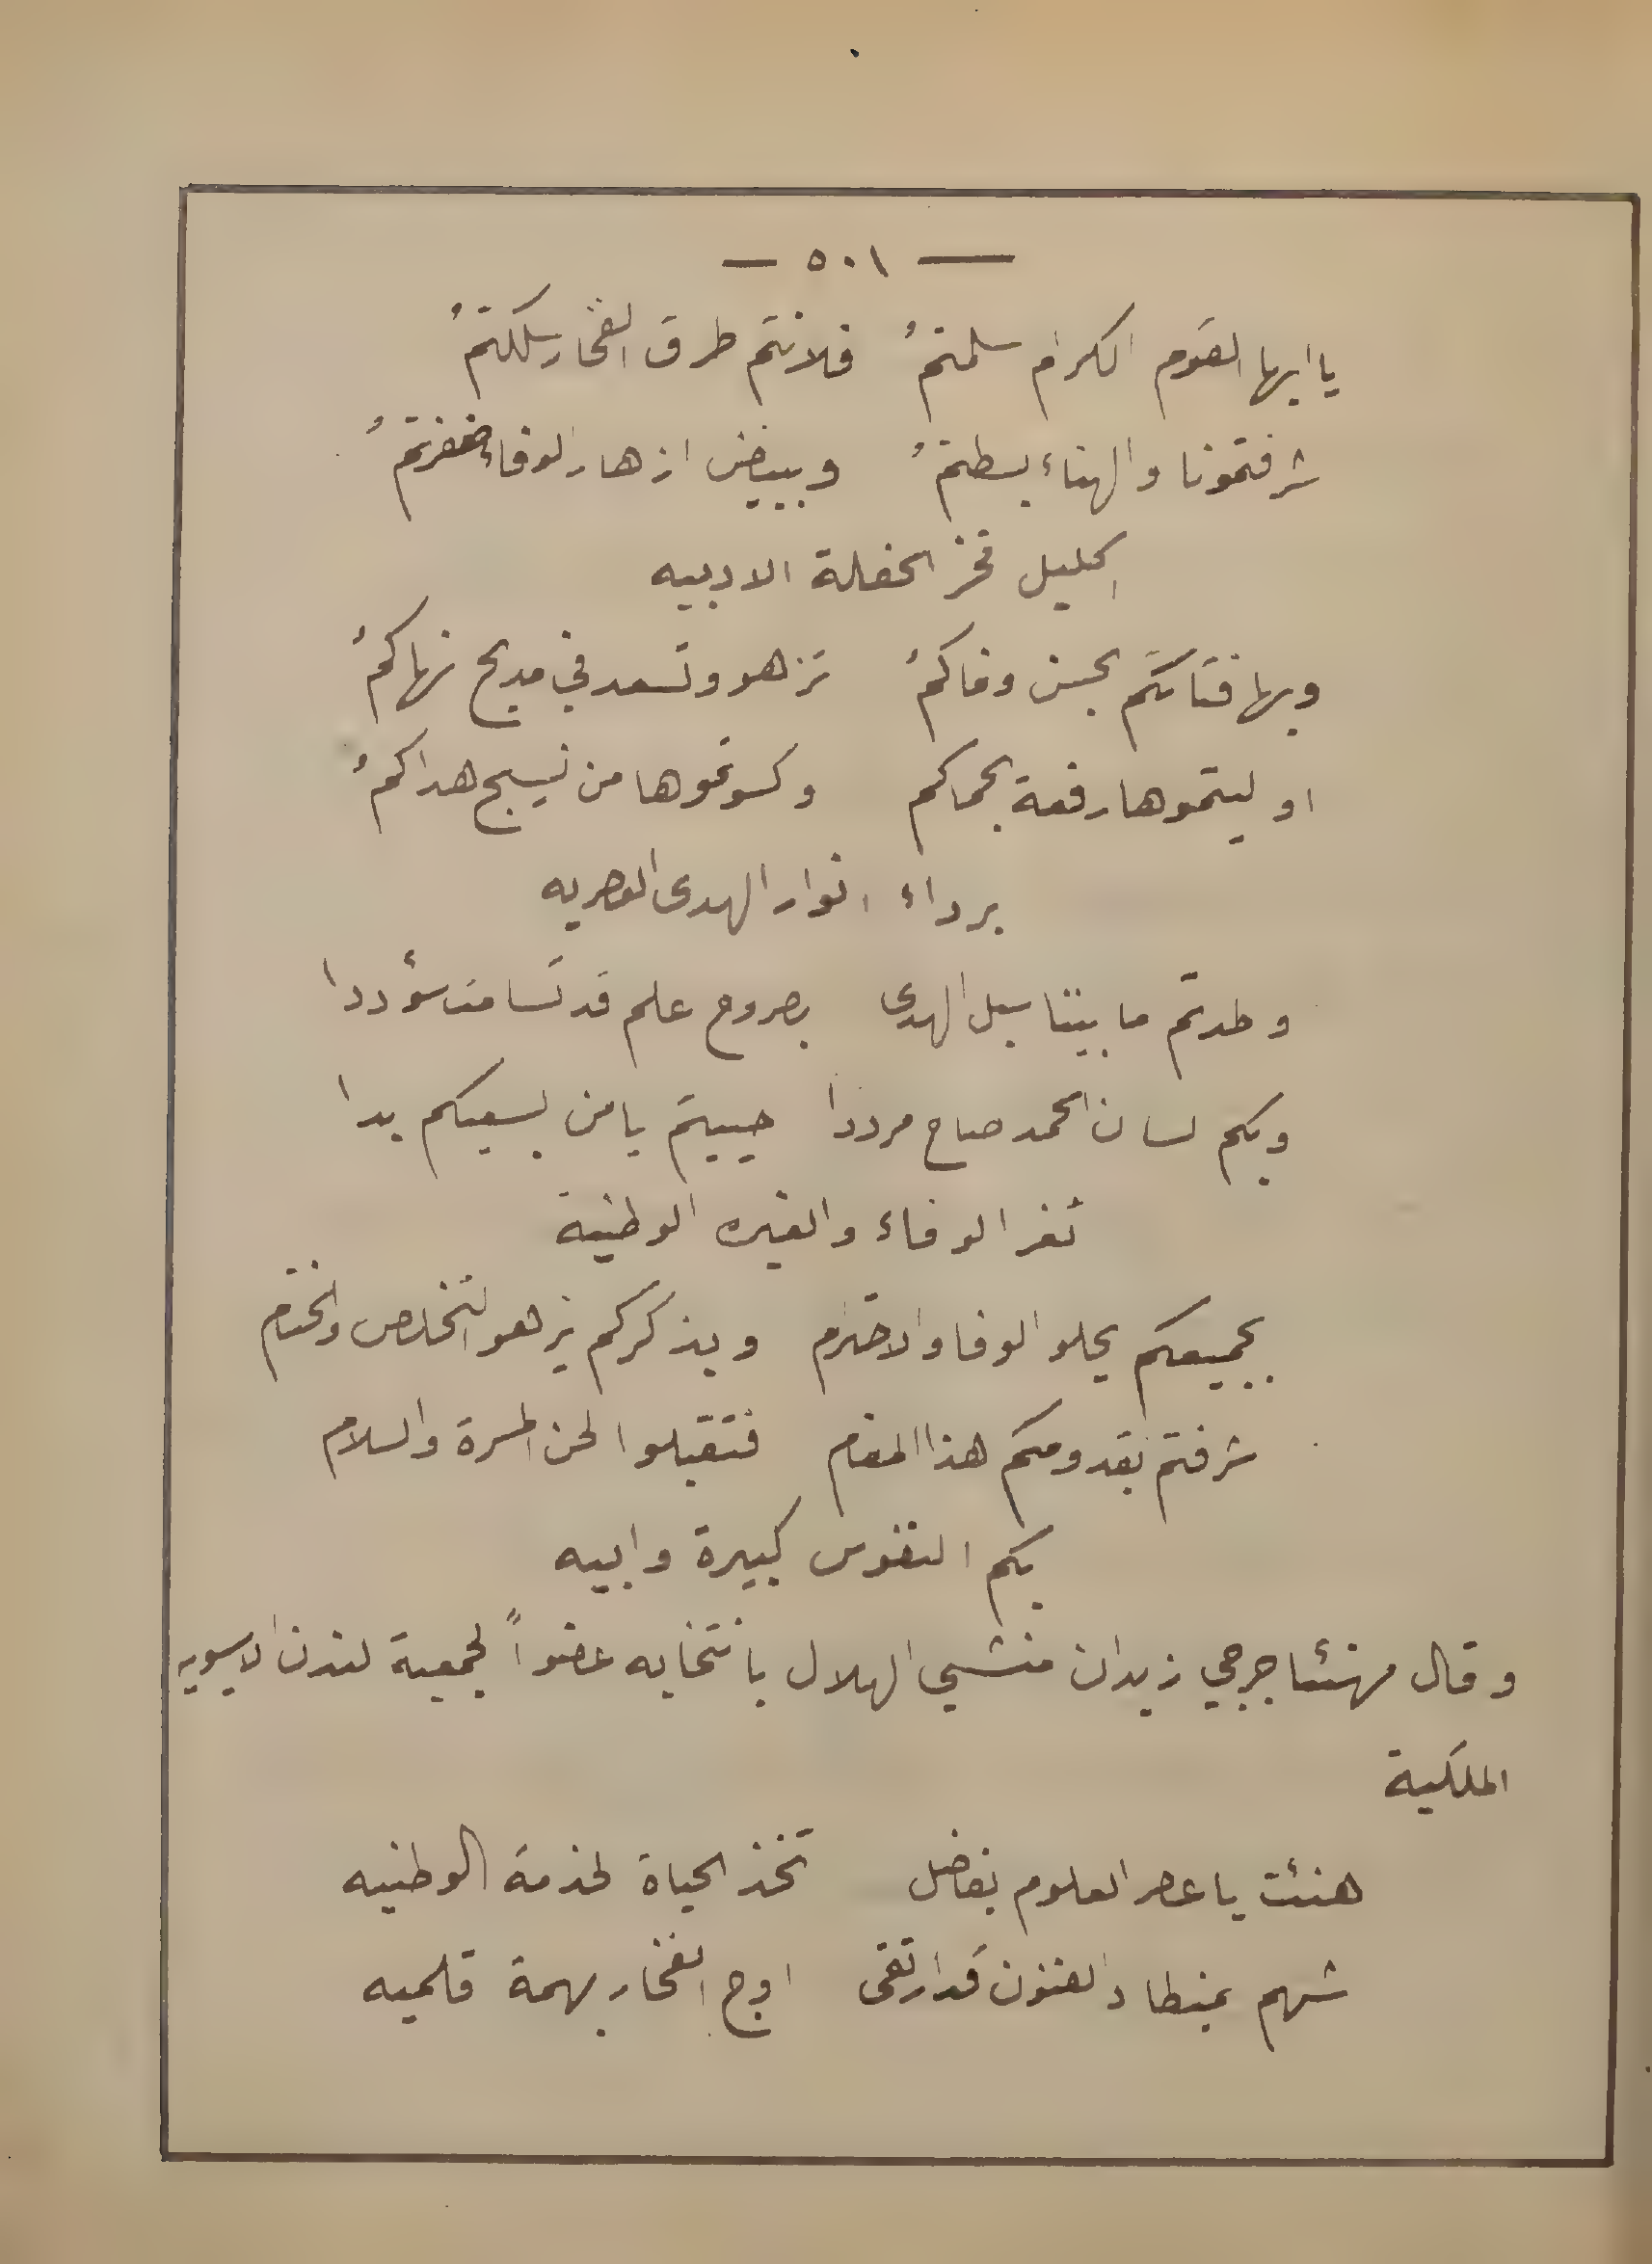 — ٥٠١ —
يا ايها القوم الكرام سلمتمُ فلانتم طرق الفخار سلكتمُ
شرفتمونا والهناء بسطتمُ وببيض ازهار الوفاء ضفرتمُ
اكليل فخر الحفلة الادبيه
وبها فتاتكم بحسن وفاكمُ تزهو وتسعد في مديح نهاكمُ
اوليتموها رفعة بحماكم وكسوتموها من نسيج هداكمُ
برداء انوار الهدى العصريه
وطدتم ما بيننا سبل الهدى بصروح علم قد تسامت سؤددا
وبكم لسان الحمد صاح مرددا حييتم يا من بسعيكم بدا
ثغر الوفاء والغيره الوطنية
بجميعكم يحلو الوفا والاحترام وبذكركم يزهو التخلص والختام
شرفتم بقدومكم هذا المقام فتقبلوا لحن المسرة والسلام
بكم النفوس كبيرة وابيه
وقال مهنئا جرجي زيدان منشي الهلال بانتخابه عضواً لجمعية لندن الاسيويه
الملكية
هنئت يا عصر العلوم بفاضل تخذ الحياة لخدمة الوطنيه
شهم بمنطاد الفنون قد ارتقى اوج الفخار بهمة قلميه